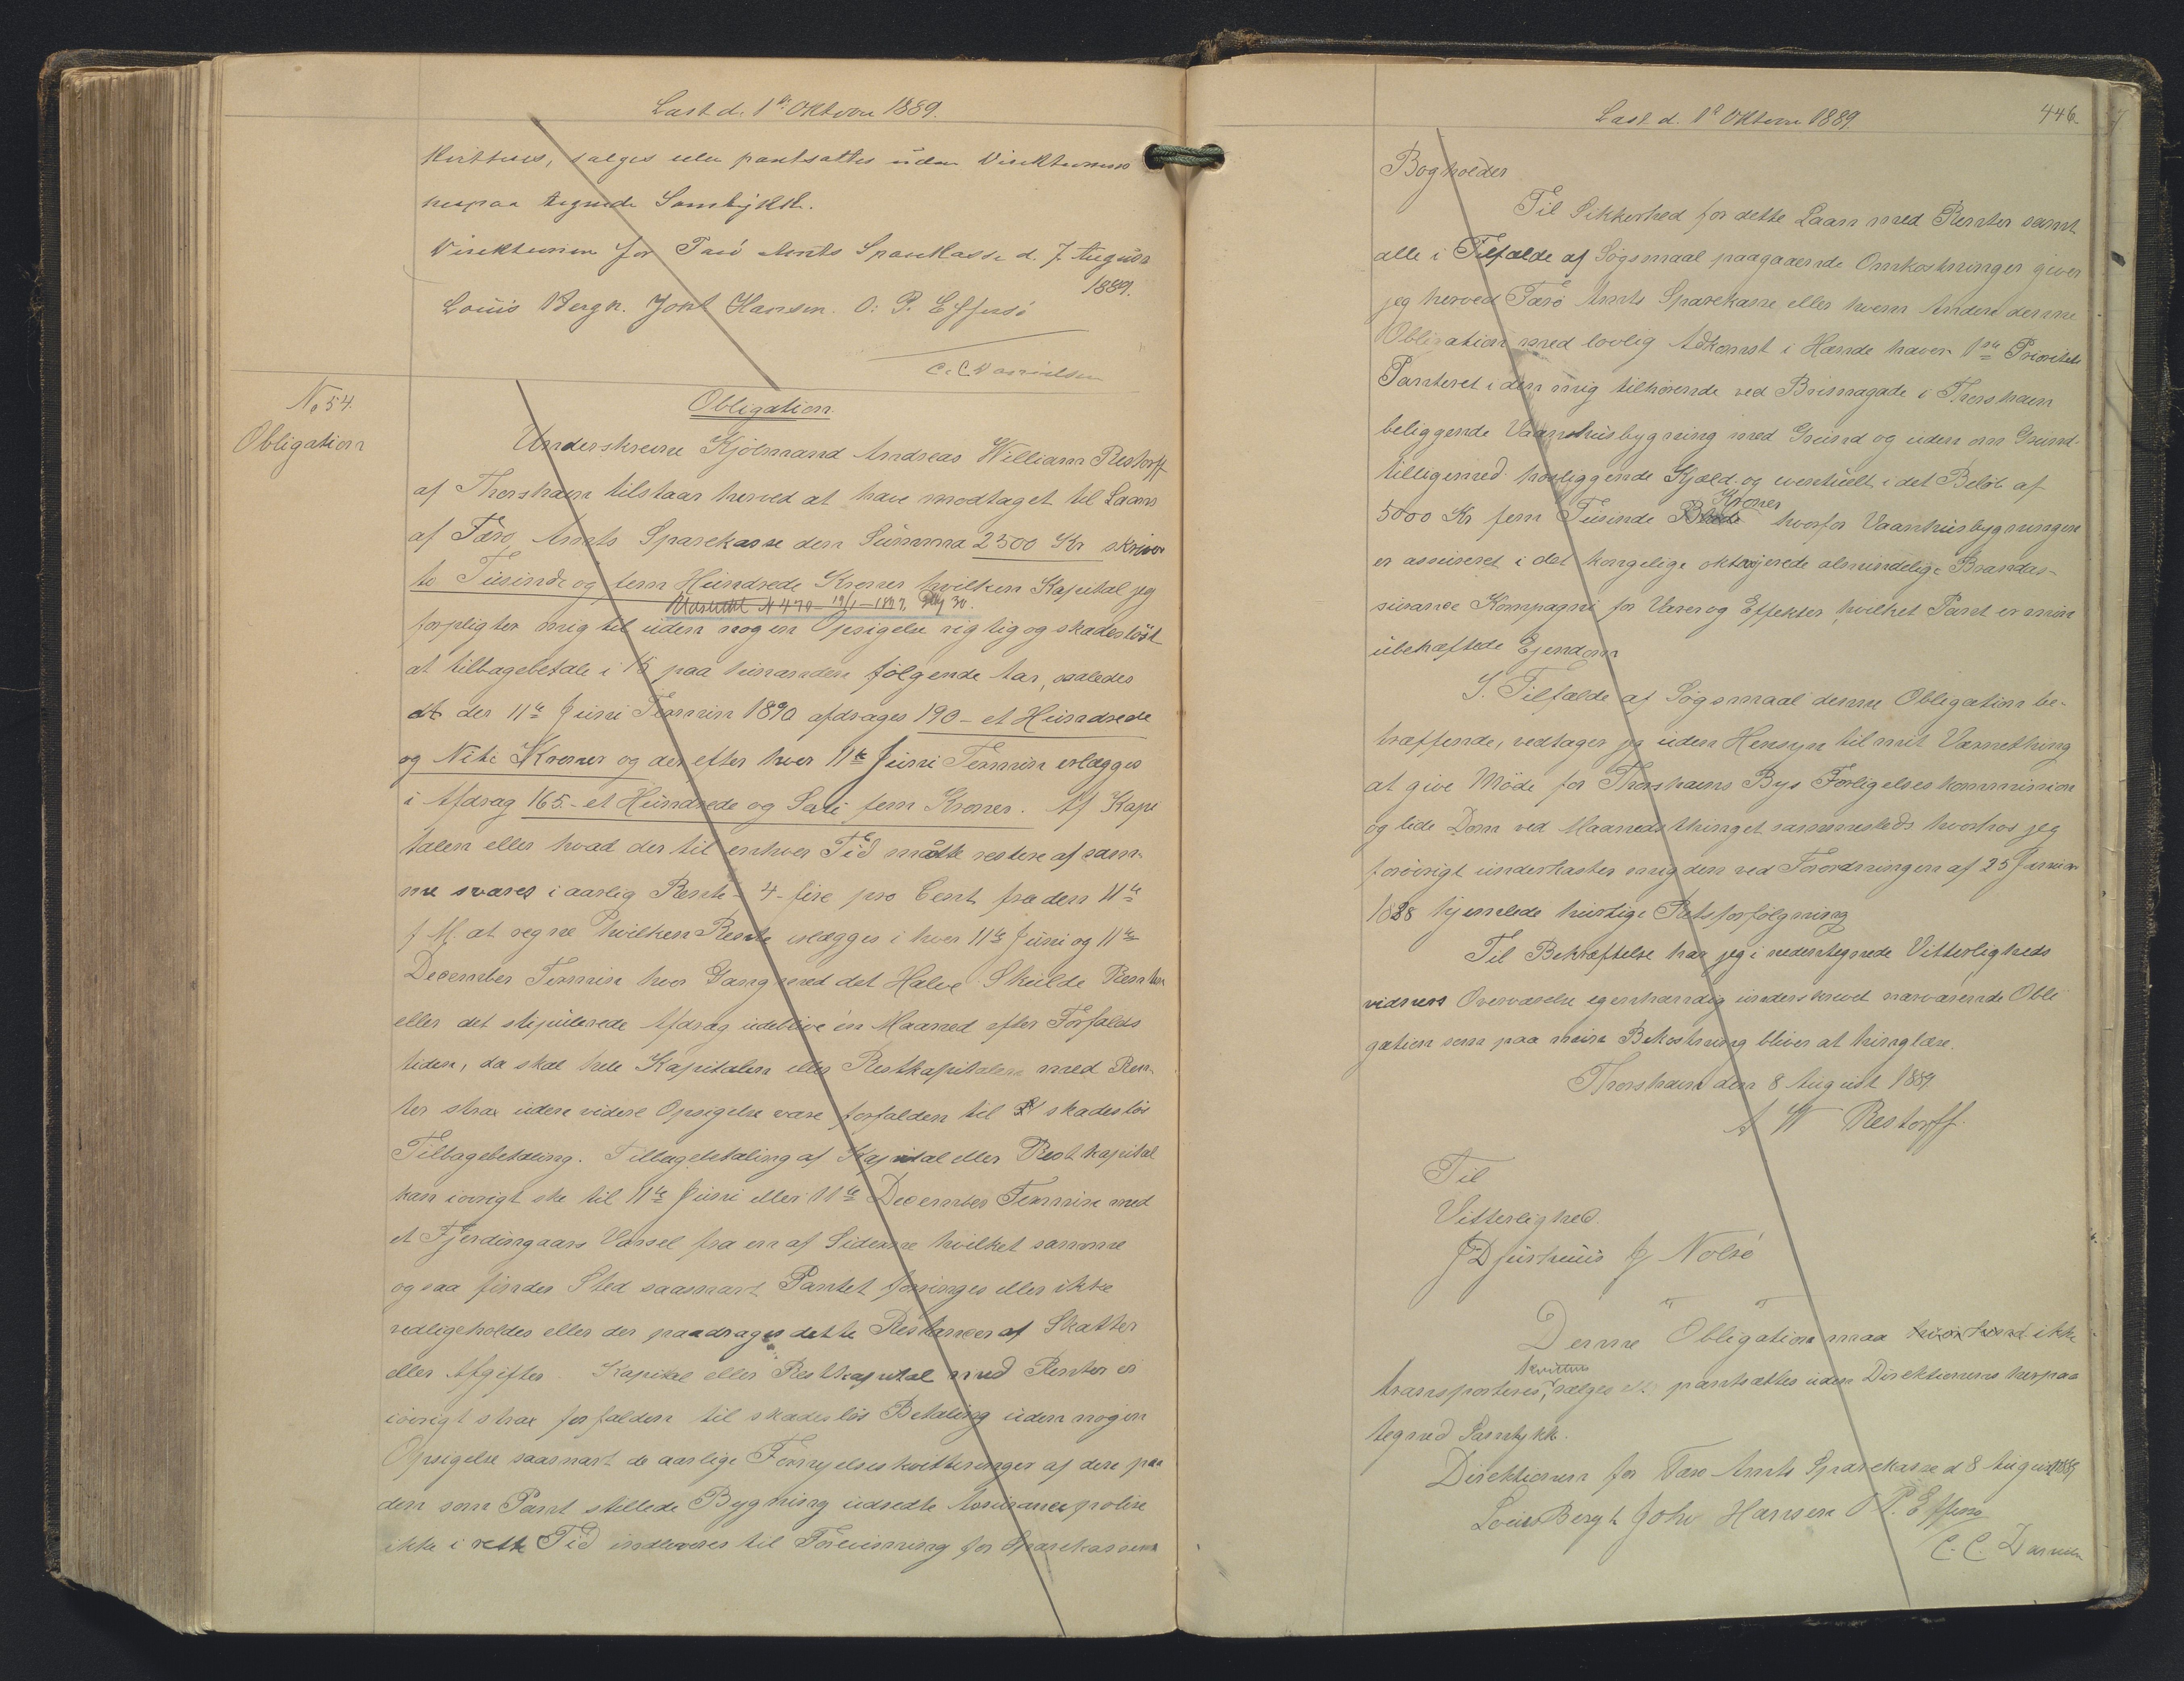 Læst d. 1ste Oktober 1889.
kvitteres, sælges eller pantsættes uden Direktionens
herpaa tegnede Samtykke.
Direktionen for Færø Amts Sparekasse d. 7 August
1889.
Louis Bergh. Joh Hansen. O: P. Effersö
C. C. Danielsen
No 54.
Obligation
Obligation.
Underskrevne Kjölmand Andreas William Restorff
af Thorshavn tilstaar herved at have modtaget til Laans
af Færo Amts Sparekasse den Summa 2500 Kr skriver
to Tusinde og fem Hundrede Kroner hvilken Kapital jeg
N 470 - 19/1 - 1897. 30.
forpligter mig til uden nogen Opsigelse rigtig og skadeslöst
at tilbagebetale i 15 paa hinanden fölgende Aar, saaledes
at der 11te Juni Termin 1890 afdrages 190 - et Hundrede
og Niti Kroner og derefter hver 11te Juni Termin erlægges
i Afdrag 165 - et Hundrede og Sexti fem Kroner. Af Kapi
talen eller hvad der til enhver Tid måtte restere af sam-
me svares i aarlig Rente - 4 - fire pro Cent fra den 11te
f M. at regne hvilken Rente erlægges i hver 11te Juni og 11te
December Termin hver Gang med det Halve. Skulde Renten
eller det stipulerede Afdrag udeblive én Maaned efter Forfalds
tiden, da skal hele Kapitalen eller Restkapitalen med Ren-
ter strax uden videre Opsigelse være forfalden til skadeslös
Tilbagebetaling. Tilbagebetaling af Kapital eller Restkapital
kan iövrigt ske til 11te Juni eller 11te December Termin med
et Fjerdingaars Varsel fra en af Siderne hvilket samme
ogsaa finder Sted saasnart Pantet forringes eller ikke
vedligeholdes eller der paadrages dette Restancer af Skatter
eller Afgifter. Kapital eller Restkapital med Renter er
iövrigt strax forfalden til skadeslös Betaling uden nogen
Opsigelse saasnart de aarlige Fornyelseskvitteringer af den paa
den som Pant stillede Bygning udstedte Assurancepolice
ikke i rette Tid indleveres til Forevisning for Sparekassens
Læst d. 1ste Oktober 1889.
446.
Bogholder
Til Sikkerhed for dette Laan med Renter samt
alle i Tilfælde af Sögsmaal paagaaende Omkostninger giver
jeg herved Færö Amts Sparekasse eller hvem Anden denne
Obligation med lovlig Adkomst i Hænde haver 1ste Prioritets
Panteret i den mig tilhörende ved Bringsnagade i Thorshavn
beliggende Vaanhusbygning med Grund og uden om Grund-
tilligemed hosliggende Kjæld. og eventuelt i det Belöb af
Kroner
5000 Kr fem Tusinde hvorfor Vaanhusbygningen
er assureret i det kongelige oktrojerede almindelige Brandas-
surance Kompagni for Varer og Effekter, hvilket Pant er min
ubehæftede Ejendom
I. Tilfælde af Sögsmaal denne Obligation be-
træffende, vedtager jg uden Hensyn til mit Værnething
at give Möde for Thorshavns Bys Forligelseskommission
og lide Dom ved Maanedsthinget sammesteds hvorhos jeg
forövrigt underkaster mig den ved Forordningen af 25 Januar
1828 hjemlede hurtige Retsforfölgning
Til Bekræftelse har jeg i nedentegnede Vitterligheds
vidners Overværelse egenhændig underskrevet nærværende Obli
gation som paa min Bekostning bliver at thinglæse.
Thorshavn den 8 August 1889
A W Restorff.
Til
Vitterlighed.
J Djurhuus J Nolsö
Denne Obligation maa ikke
kvittres
transporteres, sælges ell pantsættes uden Direktionens herpaa
tegned Samtykk.
Direktionen for Færo Amts Sparekasse d 8 August 1889
Louis Bergh Joh. Hansen O P. Effersö
C. C. Danielsen